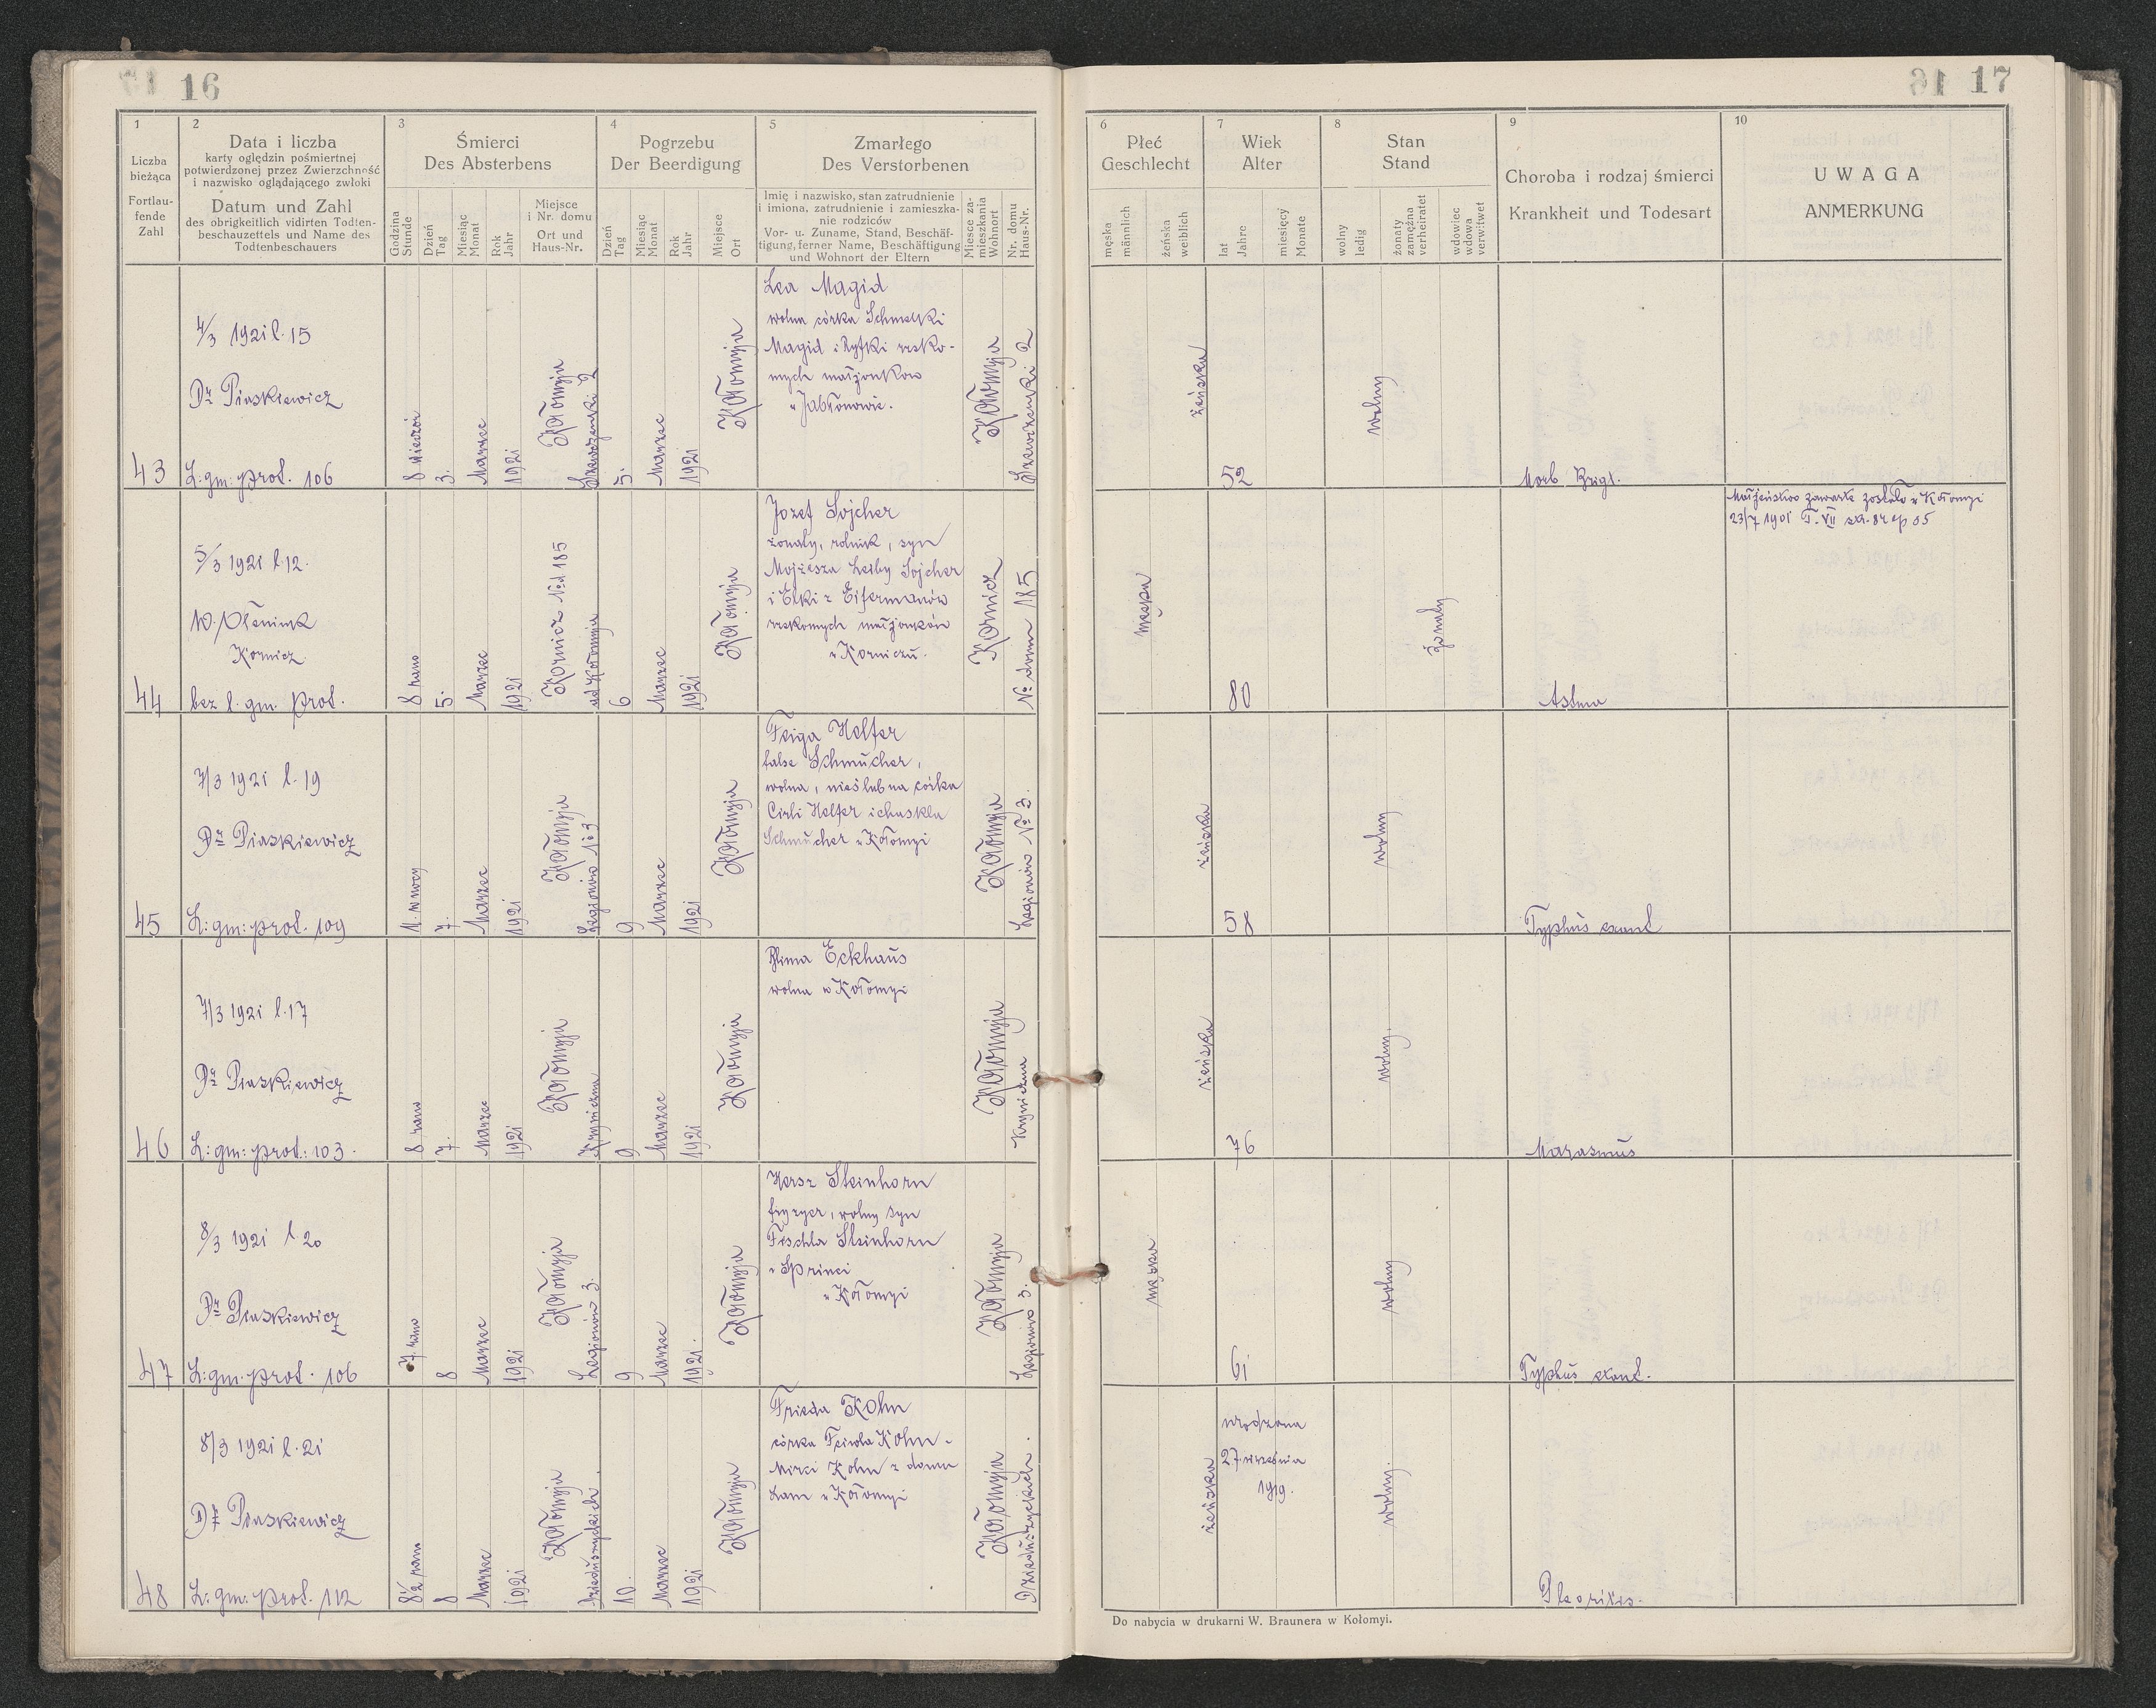 16
1
Liczba
bieżąca
Fortlau-
fende
Zahl
2
Data i liczba
karty oględzin pośmiertnej
potwierdzonej przez Zwierzchność
i nazwisko oglądającego zwłoki
Datum und Zahl
des obrigkeitlich vidirten Todten-
beschauzettels und Name des
Todtenbeschauers
3
Śmierci
Des Absterbens
Godzina
Stunde
Dzień
Tag
Miesiąc
Monat
Rok
Jahr
Miejsce
i Nr. domu
Ort und
Haus-Nr.
4
Pogrzebu
Der Beerdigung
Dzień
Tag
Miesiąc
Monat
Rok
Jahr
Miejsce
Ort
5
Zmarłego
Des Verstorbenen
Imię i nazwisko, stan zatrudnienie
i imiona, zatrudnienie i zamieszka-
nie rodziców
Vor- u. Zuname, Stand, Beschäf-
tigung, ferner Name, Beschäftigung
und Wohnort der Eltern
Miesce za-
mieszkania
Wohnort
Nr. domu
Haus-Nr.
43
4/3 1921 l. 15
Dr Piaskiewicz
L: gm: prot. 106
8 wieczór
3.
Marzec
1921
Kołomyja
Szewczenki 2
5.
Marzec
1921
Kołomyja
Lea Magid
wolna córka Schmelki
Magid i Ryfki rzeko-
mych małżonków
w Jabłonowie.
Kołomyja
Szewczenki 2
44
5/3 1921 l. 12.
Kornicz
bez l. gm. prot.
8 rano
5.
Marzec
1921
Kornicz Nd 185
ad Kołomyja
6
Marzec
1921
Kołomyja
Jozef Sojcher
żonaty, rolnik, syn
Mojżesza Leiby Sojcher
i Elki z Eifermanów
rzekomych małżonków
w Korniczu.
Kornicz
No domu 185
45
7/3 1921 l. 19
Dr Piaskiewicz
L: gm: prot. 109
11. w nocy
7.
Marzec
1921
Kołomyja
Legionów No 3
9
Marzec
1921
Kołomyja
Feiga Helfer
false Schmücher,
wolna, nieślubna córka
Cirli Helfer i chaskla
Schmücher w Kołomyi
Kołomyja
Legionów No 3.
46
7/3 1921 l. 17
Dr Piaskiewicz
L: gm: prot.: 103.
8 rano
7.
Marzec
1921
Kołomyja
Kryniczna
9
Marzec
1921
Kołomyja
Blima Eckhaus
wolna w Kołomyi
Kołomyja
Kryniczna
47
8/3 1921 l. 20
Dr Piaskiewicz
L: gm: prot. 106
7 rano
8
Marzec
1921
Kołomyja
Legionów 3.
9
Marzec
1921.
Kołomyja
Hersz Steinhorn
fryzyer, wolny syn
Fischla Steinhorn
i Sprinci
w Kołomyi
Kołomyja
Legionów 3.
48
8/3 1921 l. 21
Dr Piaskiewicz
L: gm: prot. 112
8 1/2 rano
8
Marzec
1921
Kołomyja
Dzieduszyckich.
10.
Marzec
1921
Kołomyja
Frieda Kohn
córka Feiwla Kohn -
Mirci Kohn z domu
Lam w Kołomyi
Kołomyja
Dzieduszyckich.
17
6
Płeć
Geschlecht
męska
männlich
żeńska
weiblich
7
Wiek
Alter
lat
Jahre
miesięcy
Monate
8
Stan
Stand
wolny
ledig
żonaty
zamężna
verheiratet
wdowiec
wdowa
verwitwet
9
Choroba i rodzaj śmierci
Krankheit und Todesart
10
UWAGA
ANMERKUNG
żeńska
52
wolny
Morb Brigt.
męska
80
żonaty
Astma
Małżeństwo zawarte zostało w Kołomyi
23/7 1901 T. VII
żeńska
58
wolny
Typhus exant
żeńska
76
wolny.
Marasmus
męska
61
wolny
Typhus exant.
żeńska
urodzona
27 września
1919.
wolny.
Pleoritis.
Do nabycia w drukarni W. Braunera w Kołomyi.